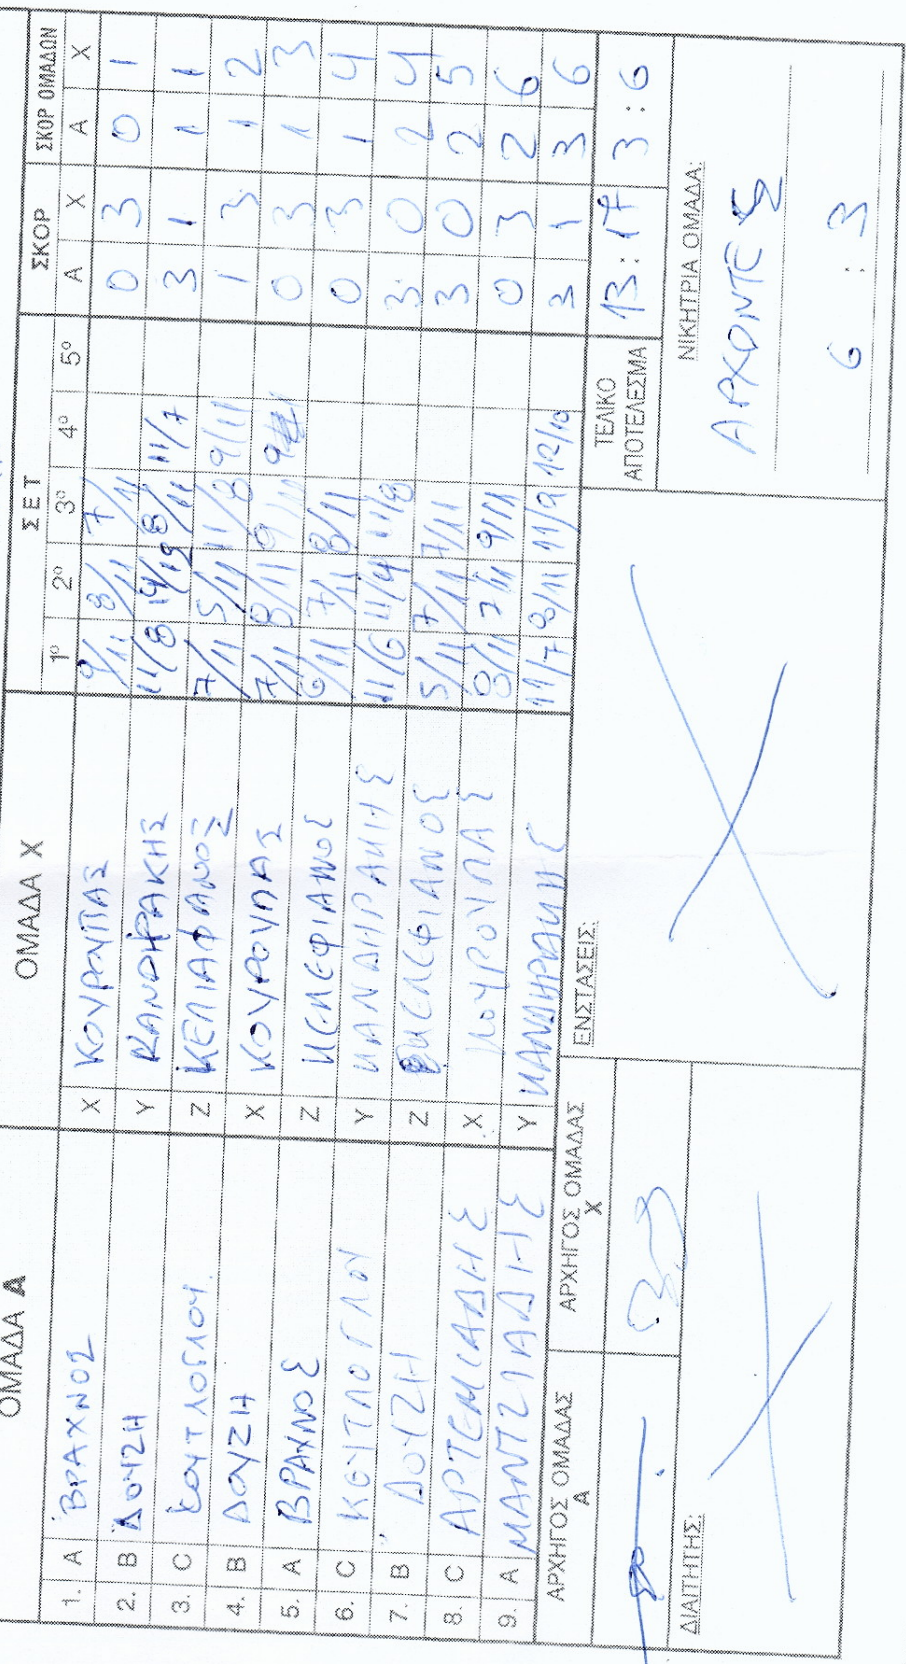 ΟΜΑΔΑ Α ΟΜΑΔΑ Χ ΣΕΤ ΣΚΟΡ ΣΚΟΡ ΟΜΑΔΩΝ
1º 2º 3º 4º 5º Α Χ Α Χ
1. A ΒΡΑΧΝΟΣ X ΚΟΥΡΟΥΠΑΣ 9/11 8/11 7/11 0 3 0 1
2. B ΔΟΥΖΗ Y ΚΑΝΔΗΡΑΚΗΣ 11/8 8/11 11/7 3 1 1 1
3. C ΚΟΥΤΛΟΓΛΟΥ. Z ΚΕΛΙΑΦΑΝΟΣ 7/11 5/11 11/8 9/11 1 3 1 2
4. B ΔΟΥΖΗ X ΚΟΥΡΟΥΠΑΣ 7/11 8/11 9/11 0 3 1 3
5. A ΒΡΑΧΝΟΣ Z ΚΕΛΕΦΙΑΝΟΣ 6/11 7/11 8/11 0 3 1 4
6. C ΚΟΥΤΛΟΓΛΟΥ Y ΚΑΝΔΗΡΑΚΗΣ 11/6 11/4 11/8 3 0 2 4
7. B ΔΟΥΖΗ Z ΚΕΛΕΦΙΑΝΟΣ 5/11 7/11 7/11 3 0 2 5
8. C ΑΡΤΕΜΙΑΔΗΣ X ΚΟΥΡΟΥΠΑΣ 8/11 7/11 9/11 0 3 2 6
9. A ΜΑΝΤΖΙΑΔΗΣ Y ΚΑΝΔΗΡΑΚΗΣ 11/7 8/11 11/9 12/10 3 1 3 6
ΑΡΧΗΓΟΣ ΟΜΑΔΑΣ Α
ΑΡΧΗΓΟΣ ΟΜΑΔΑΣ Χ
ΕΝΣΤΑΣΕΙΣ:
ΤΕΛΙΚΟ ΑΠΟΤΕΛΕΣΜΑ 13:17 3:6
ΔΙΑΙΤΗΤΗΣ:
ΝΙΚΗΤΡΙΑ ΟΜΑΔΑ:
ΑΡΧΟΝΤΕΣ
6 : 3